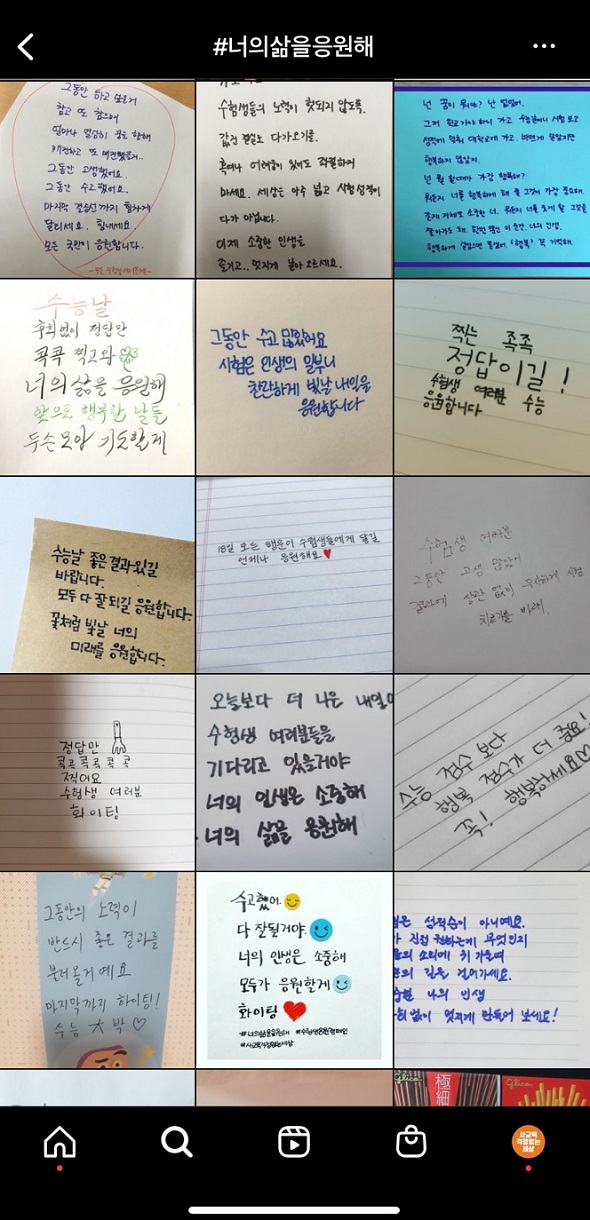 #너의삶을응원해
그동안 하고 싶은거
참고 또 참으며
얼마나 열심히 공부했을
그동안 고생했어요.
그동안 수고했어요.
마지막 결승선까지 힘차게
달리세요. 힘내세요.
모든 국민이 응원합니다.
수험생들의 노력이 헛되지 않도록.
값진 결실로 다가오기를.
혹여나 어려움이 있어도 좌절하지
마세요. 세상은 아주 넓고 시험성적이
다가 아닙니다.
이제 소중한 인생을
즐기고.. 멋지게 날아오르세요.
넌 꿈이 뭐야? 난 없었어.
행복하지 않았지.
수능날
후회없이 정답만
콕콕 찍고와
너의 삶을 응원해
앞으로 행복한 날들
두손모아 기도할게
그동안 수고 많았어요
시험은 인생의 일부니
찬란하게 빛날 내일을
응원합니다
찍는 족족
정답이길!
수험생 여러분 수능
응원합니다
수능날 좋은 결과있길
바랍니다.
모두 다 잘 되길 응원합니다.
꽃처럼 빛날 너의
미래를 응원합니다.
18일 모든 행운이 수험생들에게 닿길
언제나 응원해요♥
수험생 여러분
그동안 고생 많았어
결과에 상관 없이 무사하게 시험
치르기를 바래.
정답만
콕콕콕콕콕 콕
찍어요
수험생 여러분
화이팅
오늘보다 더 나은 내일이
수험생 여러분들을
기다리고 있을거야
너의 인생은 소중해
너의 삶을 응원해
수능 점수 보다
행복 점수가 더 중요!
꼭! 행복하세요♡
그동안의 노력이
반드시 좋은 결과를
불러올거예요
마지막까지 화이팅!
수능 大박♡
수고했어.
다 잘될거야.
너의 인생은 소중해
모두가 응원할게
화이팅
#너의삶을응원해 #수험생응원캠페인
#사교육걱정없는세상
은 성적순이 아니예요.
가 진정 원하는게 무엇인지
의 소리에 귀 기울여
의 길을 걸어가세요.
나의 인생
없이 멋지게 만들어 보세요!
Glico
極細
Glico
사교육
걱정없는
세상